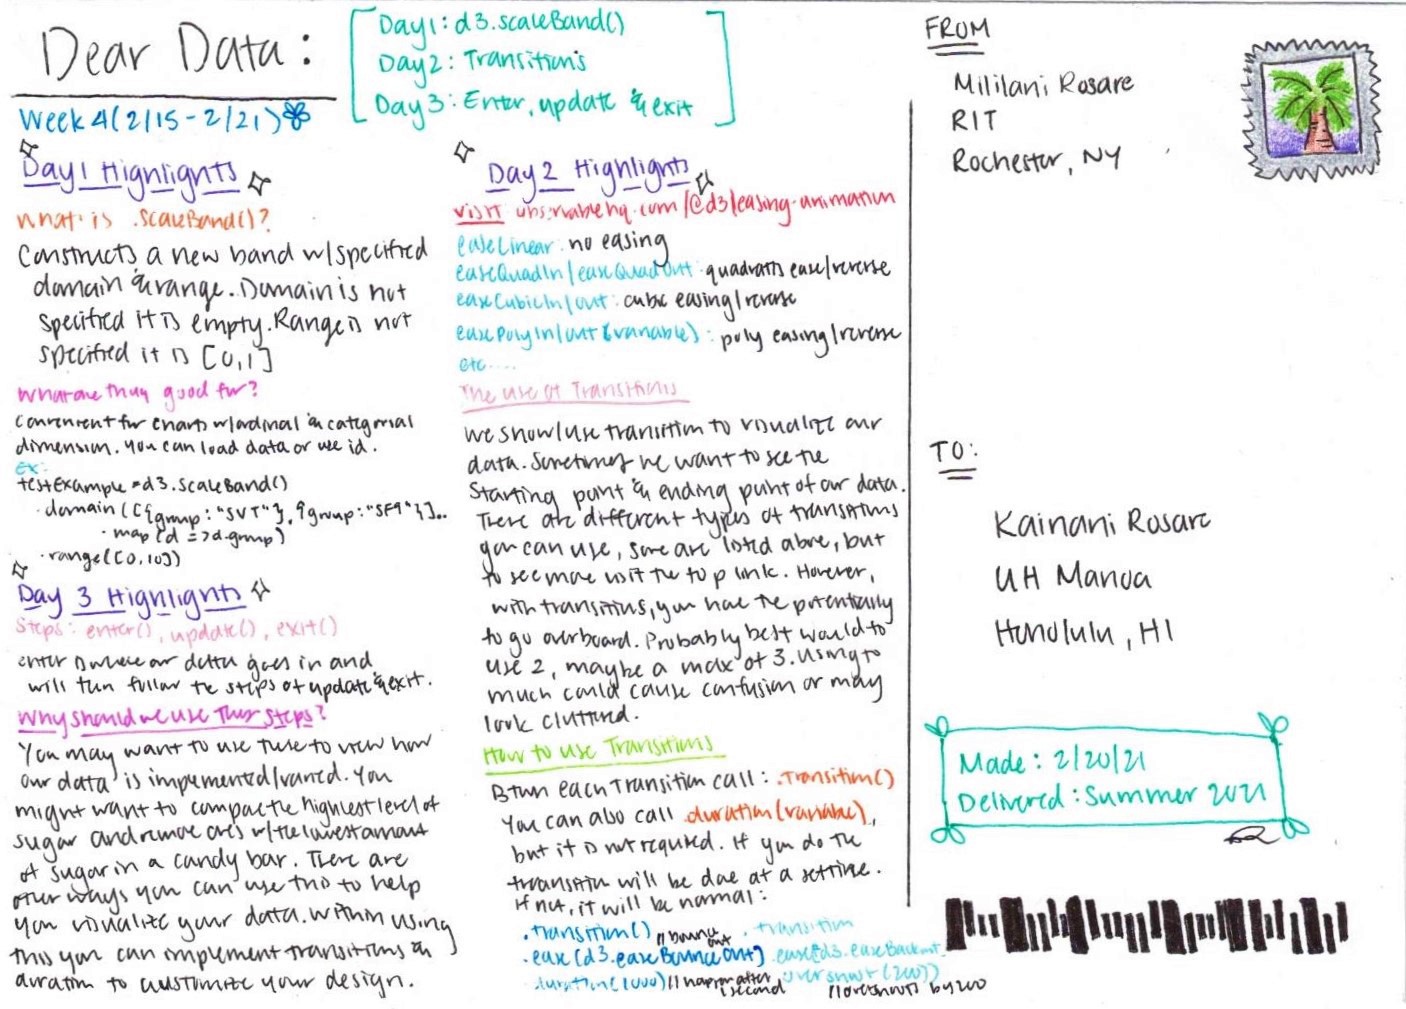 Dear Data:
Day1: d3.scaleBand()
Day2: Transitions
Day3: Enter, update & exit
Week 4 (2/15 - 2/21)
Day 1 Highlights
What is .scaleBand()?
Constructs a new band w/specified
domain & range. Domain is not
specified it is empty. Range is not
specified it is [0,1]
What are they good for?
Convenient for charts w/ordinal & categorial
dimension. You can load data or use id.
Ex:
testExample = d3.scaleBand()
.domain([{group: "SVT"}, {group: "SF9"}]..
.map(d => d.group)
.range([0,10])
Day 3 Highlights
Steps: enter(), update(), exit()
enter is where our data goes in and
will then follow the steps of update & exit.
Why should we use These Steps?
You may want to use these to view how
our data is implemented/varied. You
might want to compact the highest level of
sugar and remove ones w/the lowest amount
of sugar in a candy bar. There are
other ways you can use this to help
you visualize your data. Within using
this you can implement transitions &
duration to customize your design.
Day 2 Highlights
visit observablehq.com/@d3/easing-animation
easeLinear: no easing
easeQuadIn/easeQuadOut: quadratis ease/reverse
easeCubicIn/out: cubic easing/reverse
easePolyIn/out (variable): poly easing/reverse
etc....
The use of Transitions
We show/use transition to visualize our
data. Sometimes we want to see the
starting point & ending point of our data.
There are different types of transitions
you can use, some are listed above, but
to see more visit the top link. However,
with transitions, you have the potentially
to go overboard. Probably best would to
use 2, maybe a max of 3. Using to
much could cause confusion or may
look cluttered.
How to use Transitions
Btwn each transition call: .transition()
You can also call .duration(variable),
but it is not required. If you do the
transition will be done at a set time.
If not, it will be normal:
.transition() //bounce out
.ease(d3.easeBounceOut)
.duration(1000) //happen after 1 second
.transition
.ease(d3.easeBackOut
overshoot(200))
//overshoots by 200
FROM
Mililani Rosare
RIT
Rochester, NY
TO:
Kainani Rosare
UH Manoa
Honolulu, HI
Made: 2/20/21
Delivered: Summer 2021